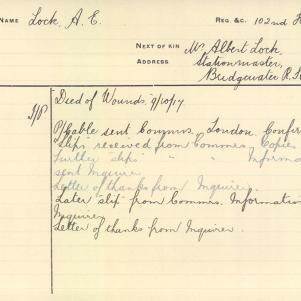 NAME Lock, A. E. REG. &C. 102nd
NEXT OF KIN Mr Albert Lock,
ADDRESS Stationmaster,
Bridgewater R.
Died of Wounds 9/10/17
Cable sent Commrs. London. Confir
slips received from Commrs. Copies
Further slips " " Informa
sent Inquirer.
Letter of thanks from Inquirer.
Later slip from Commrs. Information
Inquirer
Letter of thanks from Inquirer.